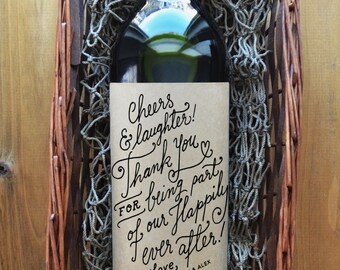 Cheers
& laughter!
Thank You
FOR being part
of our Happily
ever after!
love,
& ALEX